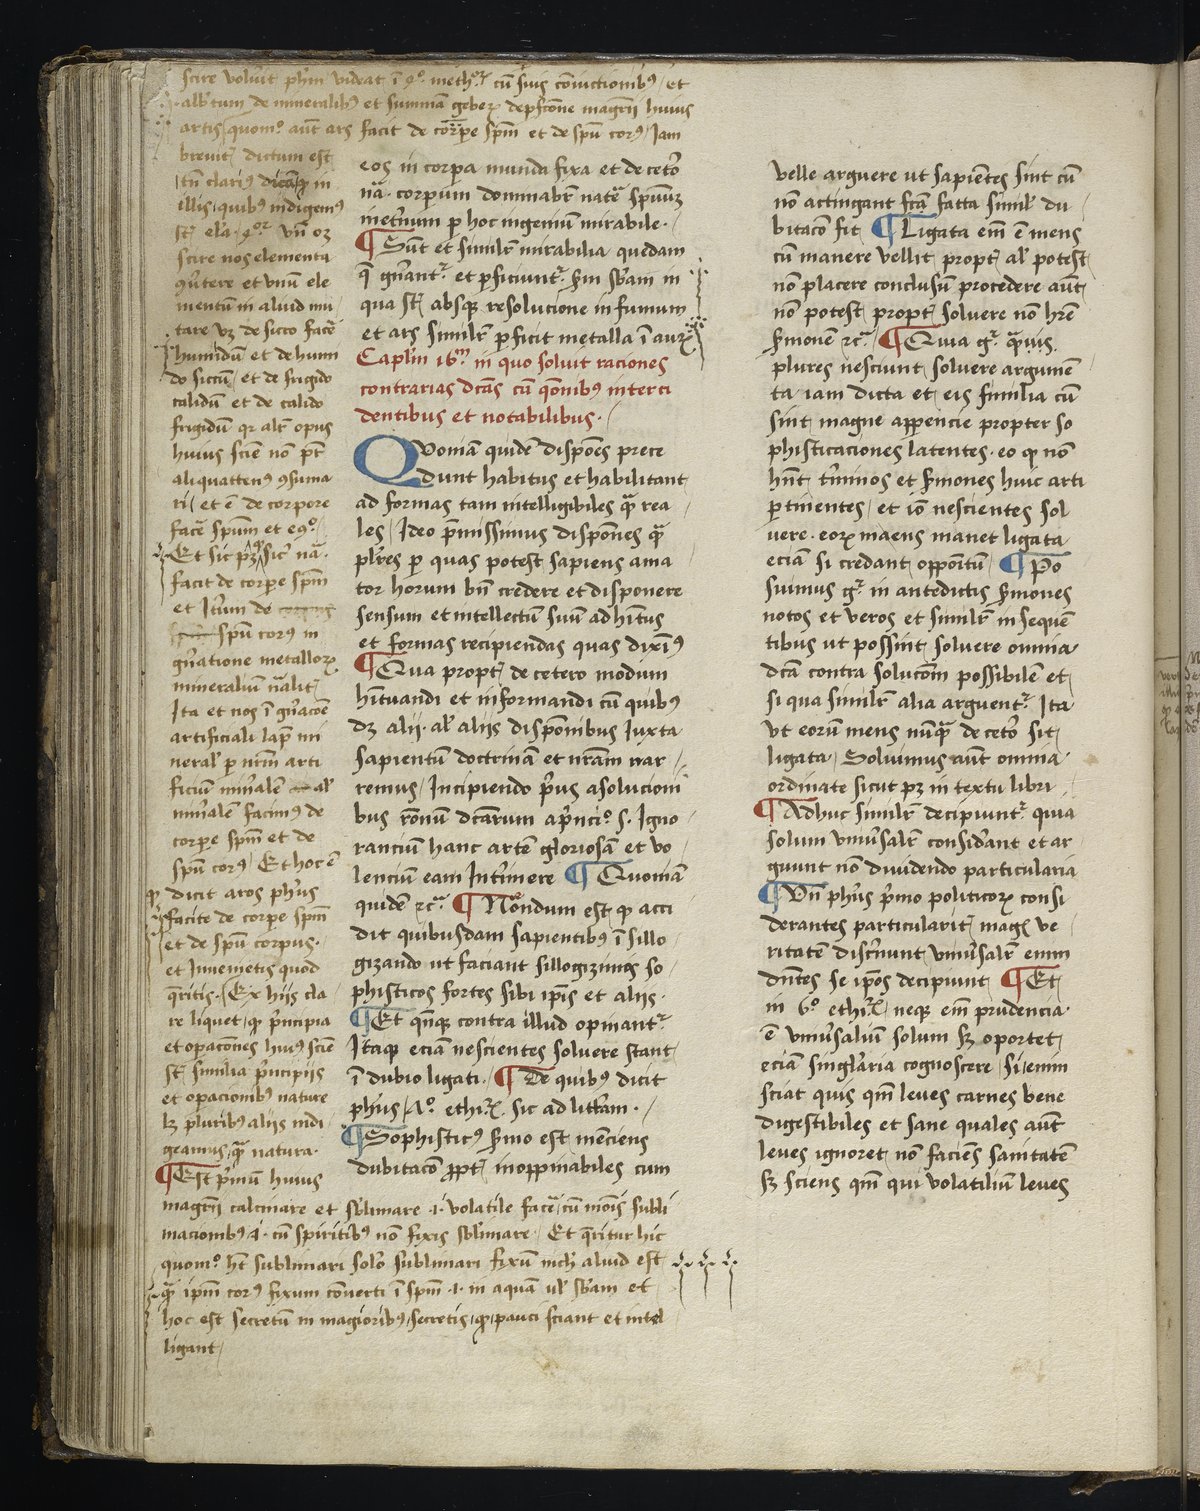 scire voluit phm videat ī 4º. methº.ꝝ cū suis cōiuctionibꝰ et
albertum de mineralibꝰ et summā geberꝭ depfcōne magr̄ii huius
artis quomº. aūt ars facit de corpe spm̄ et de spū corꝰ Iam
breuit᷑ dictum est
tn̄ clariꝰ in
illis quibꝰ indigemꝰ
st᷑ ela 4ºꝛ vn̄ oꝫ
scire nos elementa
ꝯu̓tere et vnū ele
mentū in aliud mu
tare vꝫ de sicco facē
humidū et de humi
do siccū et de frigido
calidū et de calido
frigidū qꝛ alr̄ opus
huius scīe nō pt̄
aliquattenꝰ ꝯsuma
ri et ē de corpore
facē spūm et eꝯº.
Et sic pꝫ ꝙ sic̄ nā.
facit de corpe spm̄
et Itūm de
spū corꝰ in
gn̄atione metalloꝝ
mineraliū nālit᷑
Ita et nos ī gn̄acōe
artificiali lap̄ mi
neral̓ p nr̄m arti
ficiū minalē al̓
minalē facimꝰ de
corpe spm̄ et de
spū corꝰ Et hoc ē
ꝙ dicit aros phꝰs
facite de corpe spm̄
et de spū corpus.
et Inuenietis quod
q̄ritis. Ex hiis cla
re liquet ꝙ pi̓ncipia
et opacōnes huiꝰ scīe
st᷑ similia pi̓ncipiis
et opacionibꝰ nature
lꝫ pluribꝰ aliis indi
geamus qȝ natura.
¶ Est pi̓mū huius
magr̄ii calcinare et sblimare .i. volatile facē cū mōis subli
macionibꝰ .i. cū spiritibꝰ nō fixis sblimare. Et q̄ritur hic
quomº. ht̄ sublimari solo sublimari fixū nich̓ aliud est
qȝ ipm̄ corꝰ fixum cōuerti ī spm̄ .i. in aquam ul̓ sbām et
hoc est secretū in magioribꝰ secretis ꝙ pauci sciant et intel
ligant
eos in corpora munda fixa et de ceto̓
nā. corporum dominabr̄ natē spūuȝ
meternum p hoc ingenium mirabile.
¶ Sūt et simil̓r mirabilia quedam
q̄ gn̄ant᷑. et pficiunt᷑. scd̄m sbām in
qua st᷑ absqȝ resolucione in fumum
et ars simil̓r pficit metalla ī auꝝ
Caplm̄ 16m̄ in quo soluit raciones
contrarias dc̄as cū q̄onibus interci
dentibus et notabilibus.
Qvoniā quidē dispōes prece
dunt habitus et habilitant
ad formas tam intelligibiles qȝ rea
les Ideo pm̄issimus dispōnes qȝ
pl̓res p quas potest sapiens ama
tor horum bn̄ credere et disponere
sensum et intellectū suū ad hītus
et formas recipiendas quas dixīꝰ
¶ Qua propt᷑ de cetero modum
hītuandi et informandi cū quibꝰ
dȝ alii al̓ aliis dispōnibus iuxta
sapientū doctrinā et nr̄am nar
remus Incipiendo pꝰus a solucioni
bus rōnū dc̄arum a pn̄ciº. s. Igno
ranciū hanc artē gloriosā et vo
lenciū eam Inti̓mere ¶ Quoniā
quidē ꝛc̄. ¶ Nōndum est ꝙ acci
dit quibusdam sapientibꝰ ī sillo
gizando ut faciant sillogizmos so
phisticos fortes sibi ipīs et aliis.
¶ Et qn̄qȝ contra illud opinant᷑
Itaqȝ eciā nescientes soluere stant
ī dubio ligati. ¶ De quibꝰ dicit
phꝰs 7º. ethiꝝ. sic ad litt̄am.
¶ Sophisticꝰ smo est mēciens
dubitacō ppt᷑ inoppinabiles cum
velle arguere ut sapiētes sint cū
nō attingant scā facta simil̓ du
bitacō fit ¶ Ligata em̄ ē mens
cū manere vellit propt᷑ al̓ potest
nō placere conclusū procedere aūt
nō potest propt᷑ soluere nō hr̄e
smonē ꝛc̄. ¶ Quia gͥ qȝuis
plures nesciunt soluere argumē
ta iam dicta et eis similia cū
sint magne apparencie propter so
phisticaciones latentes. eo ꝙ nō
hn̄t ti̓minos et smones huic arti
ptinentes et iō nescientes sol
uere. eoꝝ maens manet ligata
eciā si credant oppoītū ¶ Po
suimus gͥ in antedictis smones
notos et veros et simil̓r in sequē
tibus ut possint soluere omnia
dc̄a contra solucōm possibilē et
si qua simil̓r alia arguent᷑. Ita
Vt eorū mens nūqȝ de ceto̓ sit
ligata Soluimus aūt omnia
ordinate sicut pȝ in textu libri
¶ Adhuc simil̓r decipiunt᷑ quia
solum vniu̓salr̄ consid̓ant et ar
guunt nō diuidendo particularia
¶ Vn̄ phꝰs pi̓mo politicoꝝ consi
derantes particularit᷑ magꝭ ve
ritatē disc̓nunt vniu̓salr̄ enim
dn̄tes se ipōs decipiunt ¶ Et
in 6º. ethiꝝ. neqȝ em̄ prudencia
ē vniu̓saliū solum sȝ oportet
eciā singlaria cognoscere Si enim
sciat quis qm̄ leues carnes bene
digestibiles et sane quales aūt
leues ignoret nō faciēs sanitatē
sȝ sciens qm̄ qui volatiliū leues